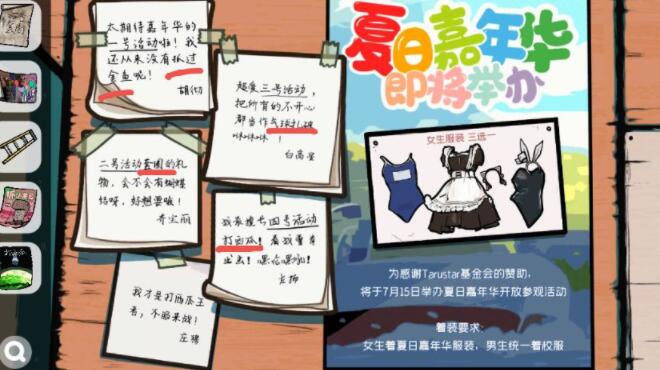 太期待嘉年华的
一号活动啦！我
还从来没有抓过
金鱼呢！
胡彻
超爱三号活动，
把所有的不开心
都当作气球扎破
咻咻咻！
白高星
二号活动套圈的礼
物，会不会有蝴蝶
结呀，好想要哦！
奇宝丽
我最擅长四号活动
打西瓜！看我看看
出击！嘿哈嘿哈！
左扬
我才是打西瓜王
者，不服来战！
庄穆
夏日嘉年华
即将举办
女生服装 三选一
为感谢Tarustar基金会的赞助，
将于7月15日举办夏日嘉年华开放参观活动
着装要求：
女生着夏日嘉年华服装，男生统一着校服